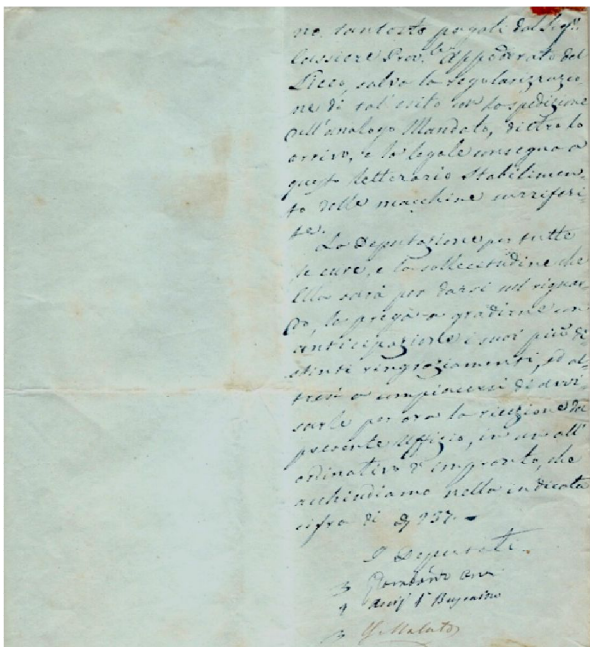 no tantosto pagati dal Sigr.
Cassiere Prov.le Apperato del
Liceo, salvo la regolarizzazio
ne di tal esito con la spedizione
dell'analogo Mandato, dietro lo
arrivo, e la legale consegna a
questo letterario Stabilimen-
to delle macchine surriferi-
te.
La Deputazione per tutte
le cure, e la sollecitudine che
Ella sarà per darsi nel riguar-
do, la prega a gradirne in
anticipazione i suoi più di-
stinti ringraziamenti, ed al-
tresì a compiacersi di avvi-
sarle per ora la ricezione del
presente Uffizio, in un all'
ordinativo d'impronto, che
acchiudiamo nella indicata
cifra di 937.
I Deputati.